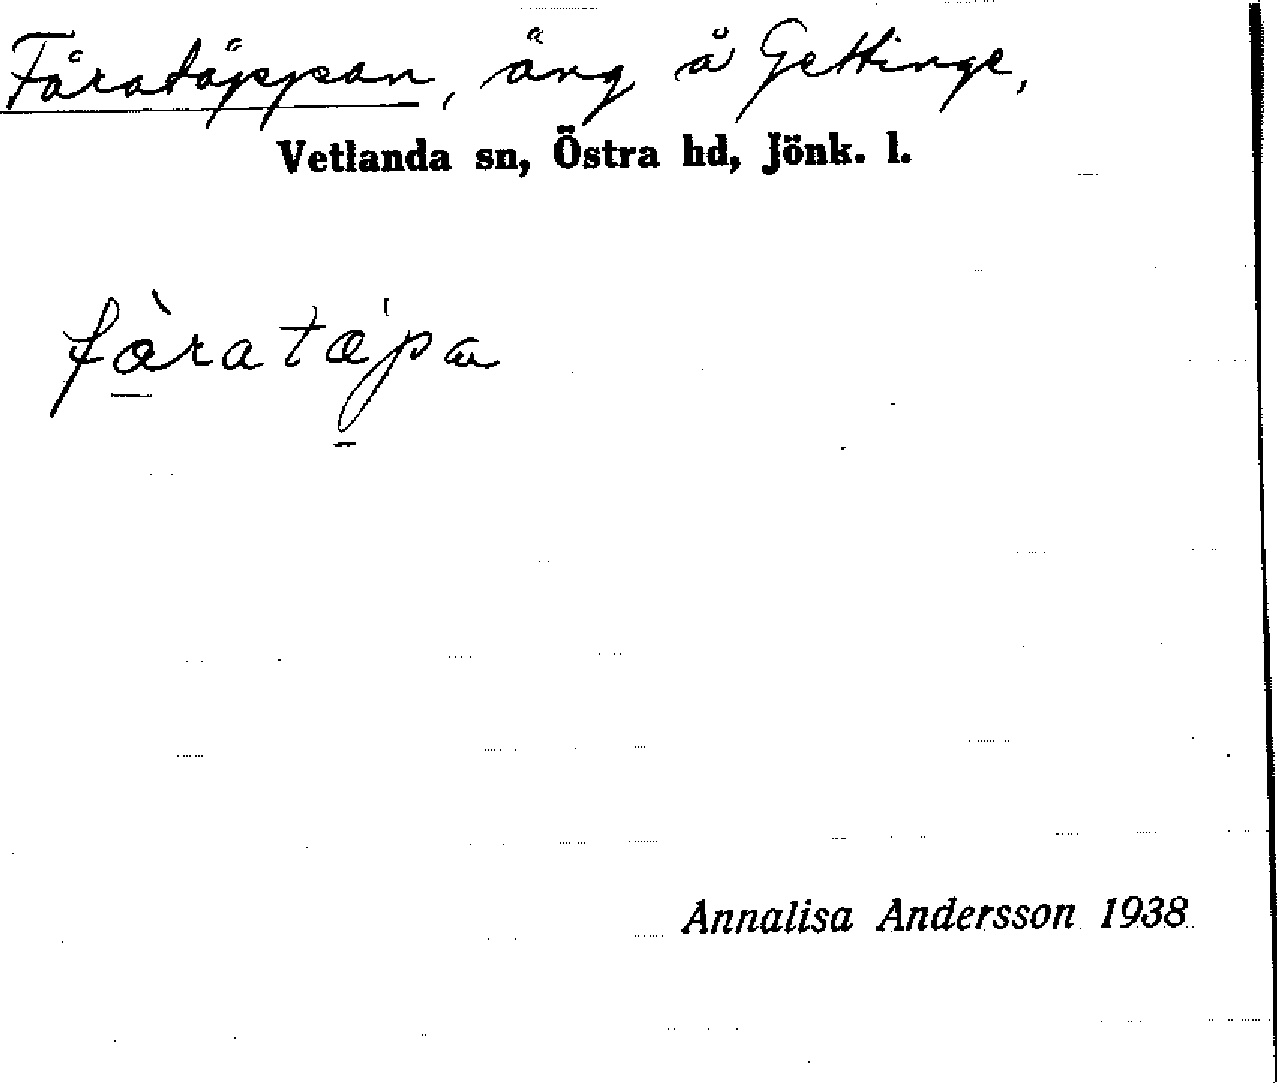 Fåratäppan, äng å Gettinge,
Vetlanda sn, Östra hd, Jönk. l.
fàratæ̍pa
Annalisa Andersson 1938